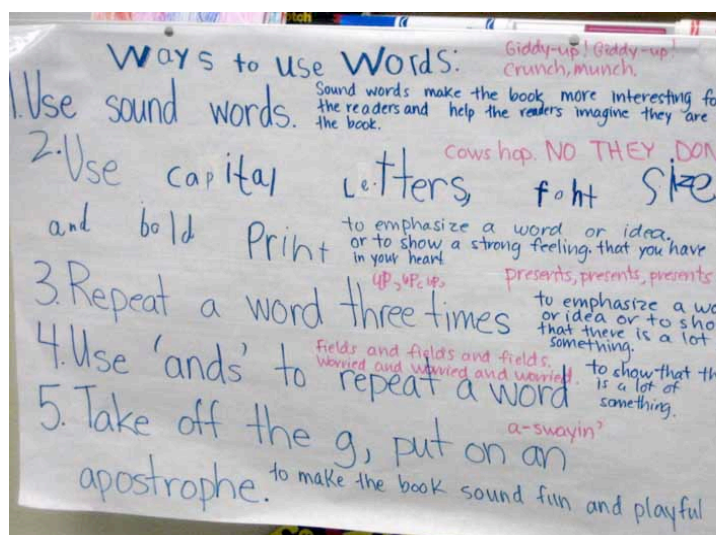 Ways to use Words:
Giddy-up! Giddy-up!
Crunch, munch.
1. Use sound words.
Sound words make the book more interesting fo
the readers and help the readers imagine they are
the book.
Cows hop. NO THEY DON
2. Use capital Letters, font size
and bold Print
to emphasize a word or idea.
or to show a strong feeling. that you have
in your heart
up, up, up,
presents, presents, presents
3. Repeat a word three times
to emphasize a wo
or idea or to sho
that there is a lot
something.
fields and fields and fields.
Worried and worried and worried.
4. Use 'ands' to repeat a word
to show that th
is a lot of
something.
a-swayin'
5. Take off the g, put on an
apostrophe.
to make the book sound fun and playful